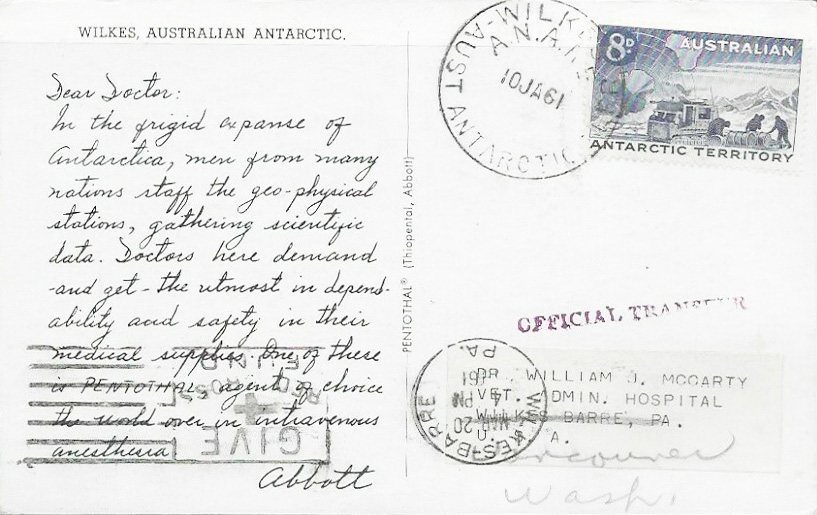 WILKES, AUSTRALIAN ANTARCTIC.
Dear Doctor:
In the frigid expanse of
Antarctica, men from many
nations staff the geo-physical
stations, gathering scientific
data. Doctors here demand
-and get- the utmost in depend-
ability and safety in their
medical supplies. One of these
is PENTOTHAL, agent of choice
the world over in intravenous
anesthesia
Abbott
PENTOTHAL® (Thiopental, Abbott)
WILKES
A.N.A.R.E.
10JA61
AUST ANTARCTIC
8D
AUSTRALIAN
ANTARCTIC TERRITORY
OFFICIAL TRANSFER
DR. WILLIAM J. MCCARTY
VET. ADMIN. HOSPITAL
WILKES BARRE, PA.
U. A.
Vancouver
Wash.
WILKES-BARRE
PA.
MAR 20
4 PM
1961
GIVE
RED CROSS
FUND